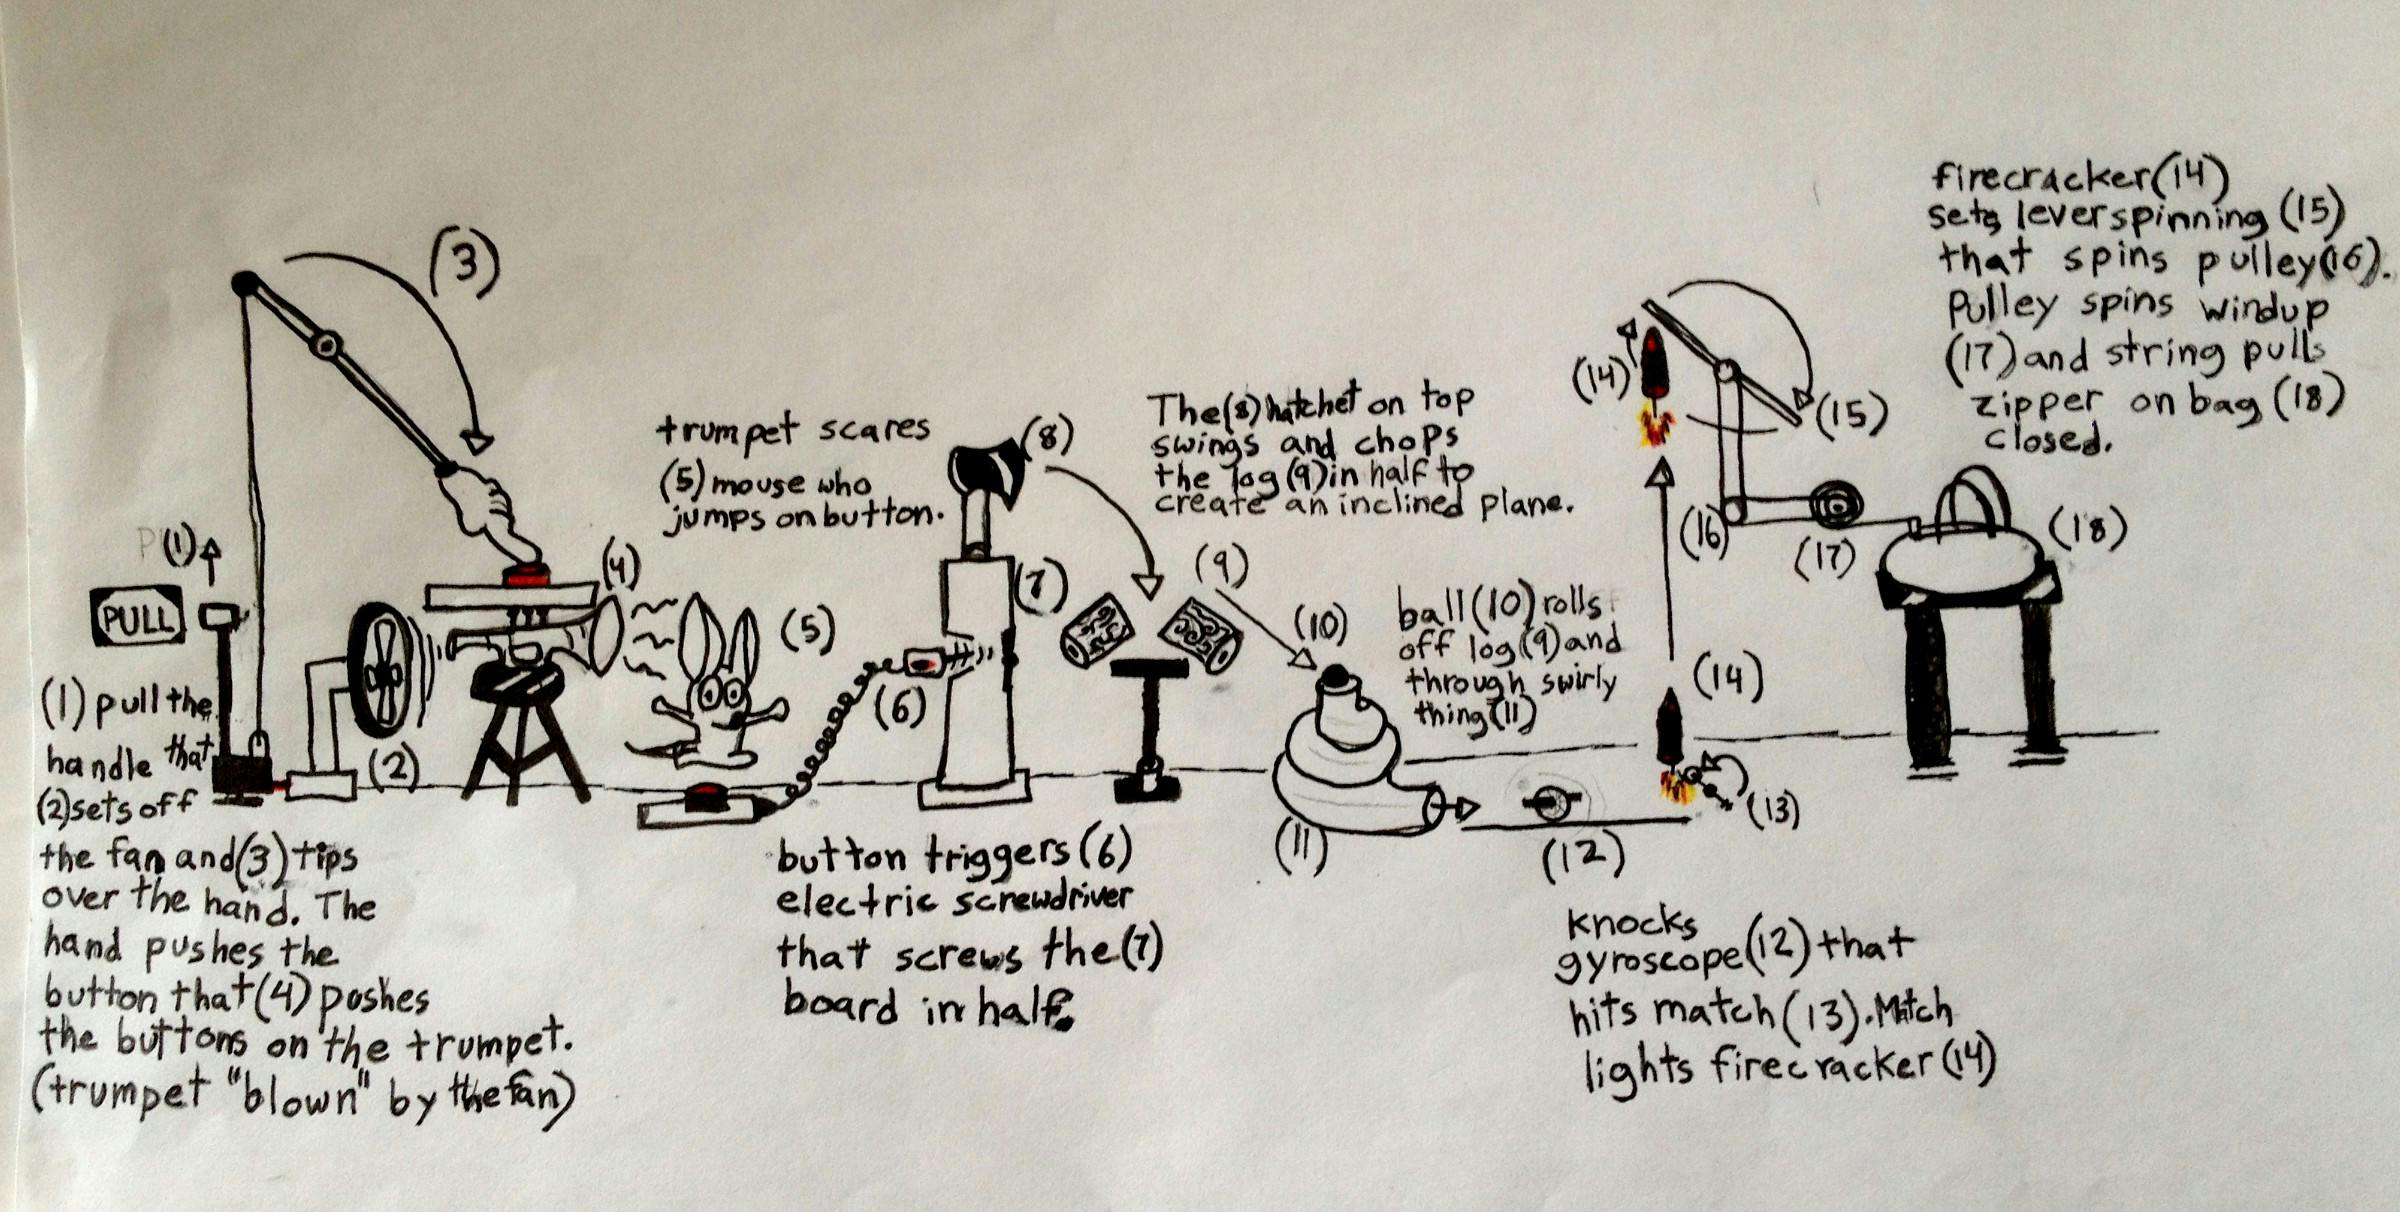 (3)
(1)
PULL
(1) pull the
handle that
(2) sets off
the fan and (3) tips
over the hand. The
hand pushes the
button that (4) poshes
the buttons on the trumpet.
(trumpet "blown" by the fan)
(2)
(4)
trumpet scares
(5) mouse who
jumps on button.
(5)
(6)
(7)
(8)
button triggers (6)
electric screwdriver
that screws the (7)
board in half.
The (8) hatchet on top
swings and chops
the log (9) in half to
create an inclined plane.
(9)
(10)
ball (10) rolls
off log (9) and
through swirly
thing (11)
(11)
(12)
(13)
(14)
knocks
gyroscope (12) that
hits match (13). Match
lights firecracker (14)
(14)
(15)
(16)
(17)
(18)
firecracker (14)
sets lever spinning (15)
that spins pulley (16).
Pulley spins windup
(17) and string pulls
zipper on bag (18)
closed.